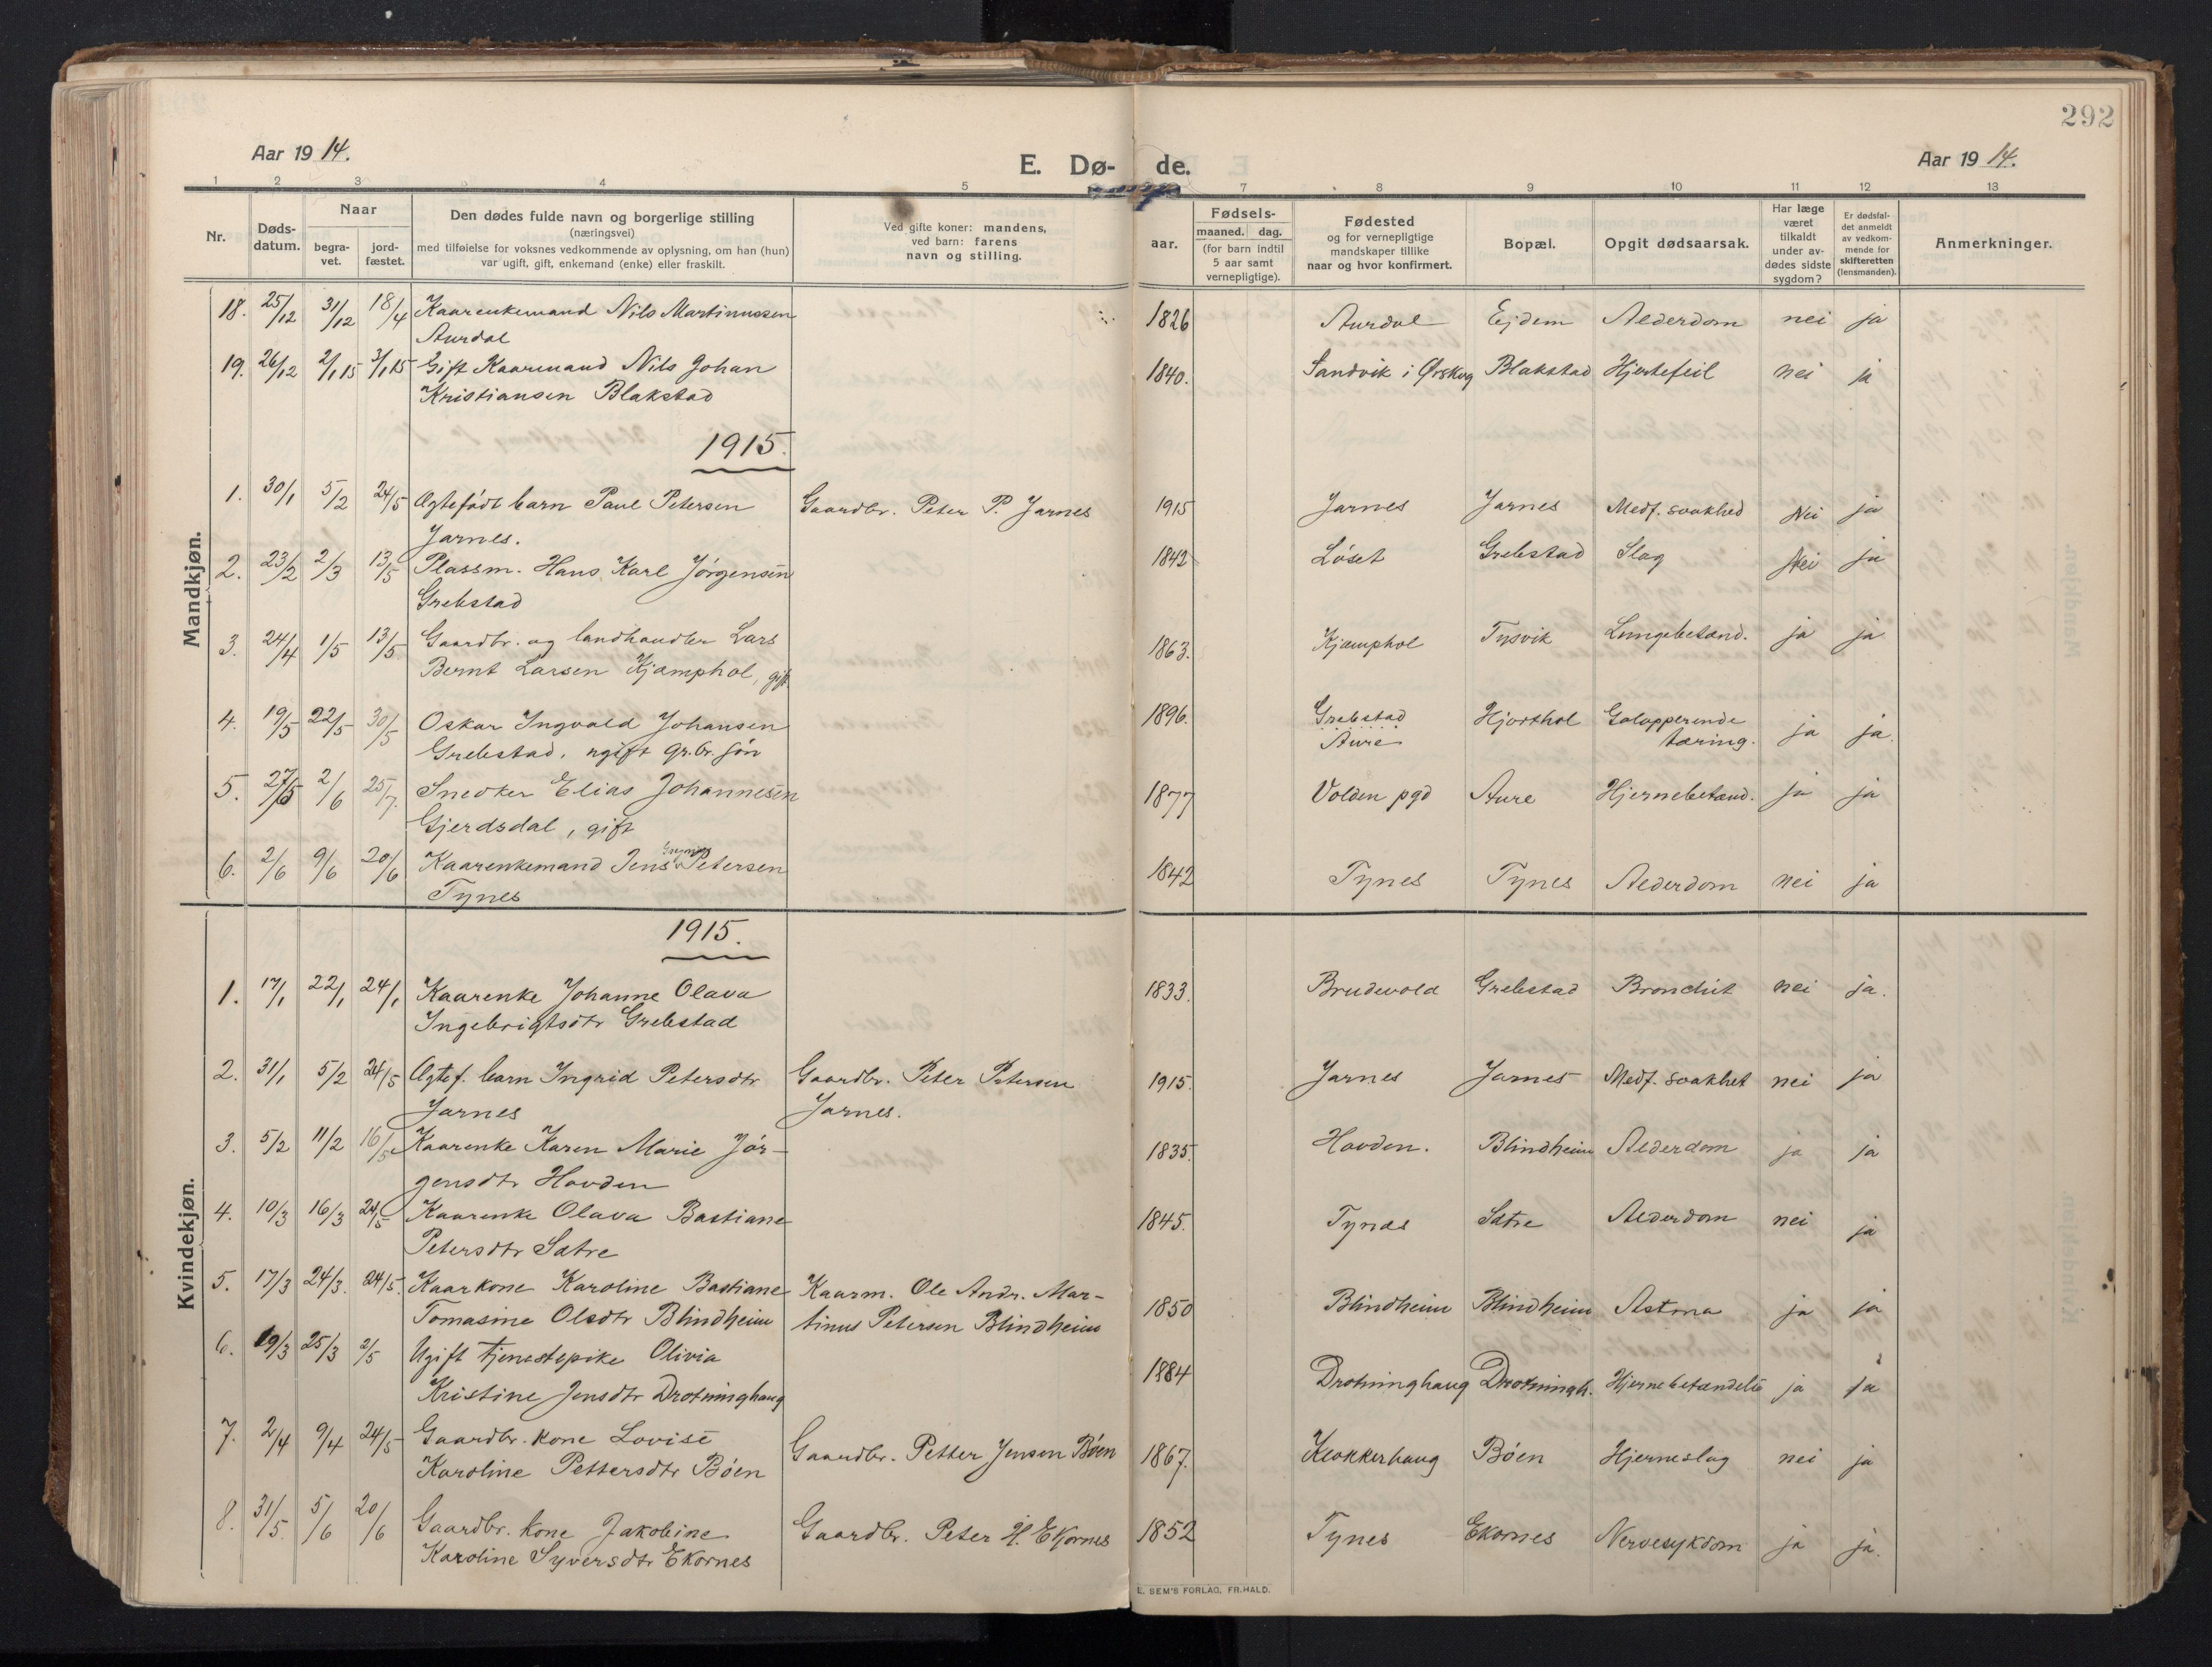 292
Aar 1914.
E. Dø- de.
Aar 1914.
1 2 3 4 5 7 8 9 10 11 12 13
Nr.
Døds-
datum.
Naar
begra-
vet.
jord-
fæstet.
Den dødes fulde navn og borgerlige stilling
(næringsvei)
med tilføielse for voksnes vedkommende av oplysning, om han (hun)
var ugift, gift, enkemand (enke) eller fraskilt.
Ved gifte koner: mandens,
ved barn: farens
navn og stilling.
aar.
Fødsels-
maaned. dag.
(for barn indtil
5 aar samt
vernepligtige).
Fødested
og for vernepligtige
mandskaper tillike
naar og hvor konfirmert.
Bopæl.
Opgit dødsaarsak.
Har læge
været
tilkaldt
under av-
dødes sidste
sygdom?
Er dødsfal-
det anmeldt
av vedkom-
mende for
skifteretten
(lensmanden).
Anmerkninger.
Mandkjøn.
18. 25/12 31/12 18/4 Kaarenkemand Nils Martinussen 1826 Aurdal Ejdem Alderdom nei ja
Aurdal
19. 26/12 2/1 15 3/1 15 Gift Kaarmand Nils Johan 1840. Sandvik i Ørskog Blakstad Hjertefeil nei ja
Kristiansen Blakstad
1915.
1. 30/1 5/2 24/5 Ægtefødt barn Paul Petersen Gaardbr. Peter P. Jarnes 1915 Jarnes Jarnes Medf. svakhed Nei ja
Jarnes.
2. 23/2 2/3 13/5 Plassm. Hans Karl Jørgensen 1842 Løset Grebstad Slag Nei ja
Grebstad
3. 24/4 1/5 13/5 Gaardbr. og landhandler Lars 1863. Kjæmphol Tysvik Lungebetænd. ja ja
Bernt Larsen Kjæmphol, gift
4. 19/5 22/5 30/5 Oskar Ingvald Johansen 1896. Grebstad Hjorthol Galopperende ja ja.
Grebstad, ugift gr.br. søn Aure tæring.
5. 27/5 2/6 25/7. Snedker Elias Johannesen 1877 Volden pgd Aure Hjernebetænd. ja ja
Gjerdsdal, gift
6. 2/6 9/6 20/6 Kaarenkemand Jens Petersen 1842 Tynes Tynes Alderdom nei ja
Tynes
Kvindekjøn.
1915.
1. 17/1 22/1 24/1 Kaarenke Johanne Olava 1833. Brudevold Grebstad Bronchit nei ja.
Ingebrigtsdtr Grebstad
2. 31/1 5/2 24/5 Ægtef. barn Ingrid Petersdtr Gaardbr. Peter Petersen 1915. Jarnes Jarnes Medf. svakhet nei ja
Jarnes Jarnes.
3. 5/2 11/2 16/5 Kaarenke Karen Marie Jør- 1835. Hovden. Blindheim Alderdom ja ja
gensdtr Hovden
4. 10/3 16/3 24/5 Kaarenke Olava Bastiane 1845. Tynes Sætre Alderdom nei ja
Petersdtr Sætre
5. 17/3 24/3. 24/5. Kaarkone Karoline Bastiane Kaarm. Ole Andr. Mar- 1850 Blindheim Blindheim Astma ja ja
Tomasine Olsdtr Blindheim tinus Petersen Blindheim
6. 19/3 25/3 2/5 Ugift tjenestepike Olivia 1884 Drotninghaug Drotningh. Hjernebetændelse ja ja
Kristine Jensdtr Drotninghaug
7. 2/4 9/4 24/5 Gaardbr. kone Lovise Gaardbr. Petter Jensen Bøen 1867. Klokkerhaug Bøen Hjerneslag nei ja
Karoline Pettersdtr Bøen
8. 31/5. 5/6 20/6 Gaardbr. kone Jakobine Gaardbr. Peter H. Ekornes 1852 Tynes Ekornes Nervesykdom ja ja.
Karoline Syversdtr Ekornes
E. SEM'S FORLAG, FR.HALD.